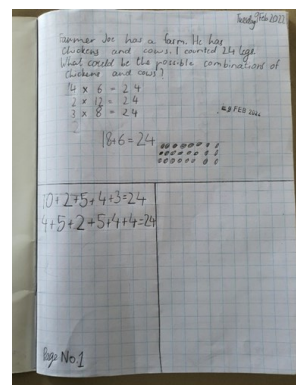 Feb 2022
Farmer Joe has a farm. He has
chickens and cows. I counted 24 legs.
What could be the possible combinations of
chickens and cows?
4 x 6 = 24
2 x 12 = 24
3 x 8 = 24
2
FEB
18+6=24
10+2+5+4+3=24
4+5+2+5+4+4=24
Page No.1